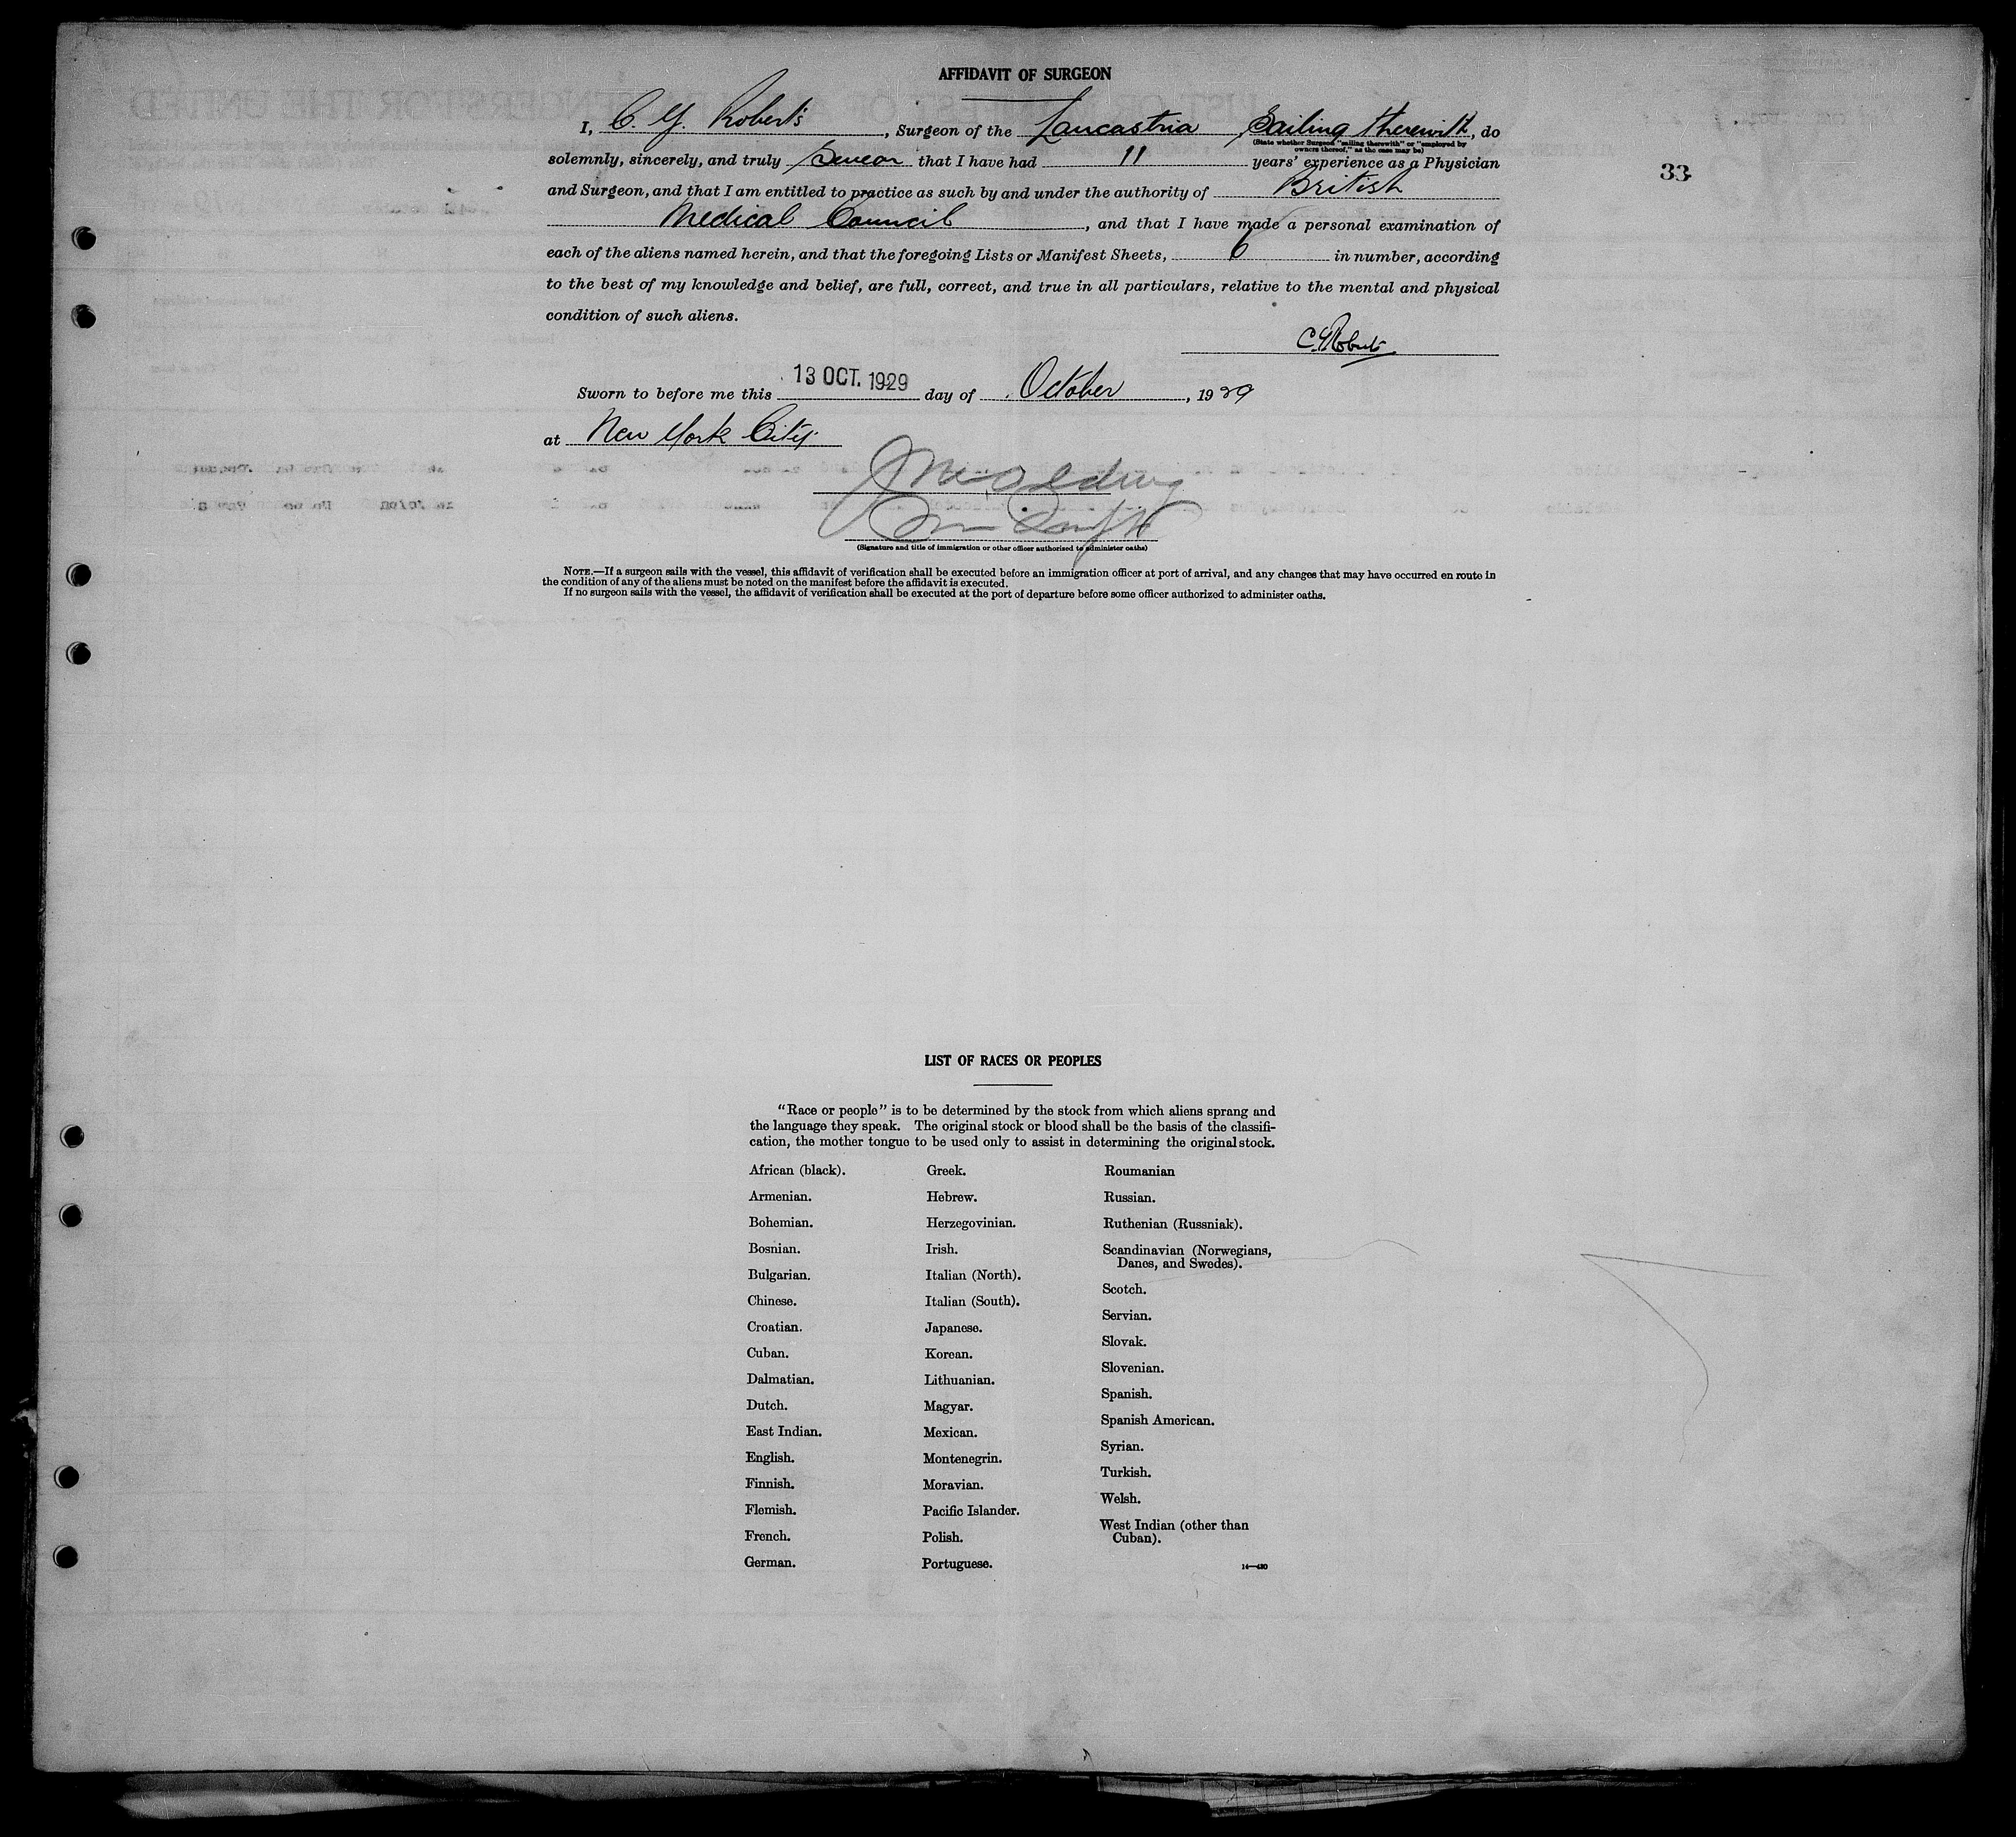 AFFIDAVIT OF SURGEON
I, C. Y. Roberts, Surgeon of the Lancastria, Sailing therewith, do
(State whether Surgeon "sailing therewith" or "employed by
owners thereof," as the case may be)
solemnly, sincerely, and truly Swear that I have had 11 years' experience as a Physician
33
and Surgeon, and that I am entitled to practice as such by and under the authority of British
Medical Council, and that I have made a personal examination of
each of the aliens named herein, and that the foregoing Lists or Manifest Sheets, 6 in number, according
to the best of my knowledge and belief, are full, correct, and true in all particulars, relative to the mental and physical
condition of such aliens.
C Y Roberts
Sworn to before me this 13 OCT. 1929 day of October, 1929
at New York City.
(Signature and title of immigration or other officer authorized to administer oaths)
NOTE.—If a surgeon sails with the vessel, this affidavit of verification shall be executed before an immigration officer at port of arrival, and any changes that may have occurred en route in
the condition of any of the aliens must be noted on the manifest before the affidavit is executed.
If no surgeon sails with the vessel, the affidavit of verification shall be executed at the port of departure before some officer authorized to administer oaths.
LIST OF RACES OR PEOPLES
"Race or people" is to be determined by the stock from which aliens sprang and
the language they speak. The original stock or blood shall be the basis of the classifi-
cation, the mother tongue to be used only to assist in determining the original stock.
African (black).
Armenian.
Bohemian.
Bosnian.
Bulgarian.
Chinese.
Croatian.
Cuban.
Dalmatian.
Dutch.
East Indian.
English.
Finnish.
Flemish.
French.
German.
Greek.
Hebrew.
Herzegovinian.
Irish.
Italian (North).
Italian (South).
Japanese.
Korean.
Lithuanian.
Magyar.
Mexican.
Montenegrin.
Moravian.
Pacific Islander.
Polish.
Portuguese.
Roumanian
Russian.
Ruthenian (Russniak).
Scandinavian (Norwegians,
Danes, and Swedes).
Scotch.
Servian.
Slovak.
Slovenian.
Spanish.
Spanish American.
Syrian.
Turkish.
Welsh.
West Indian (other than
Cuban).
14—430